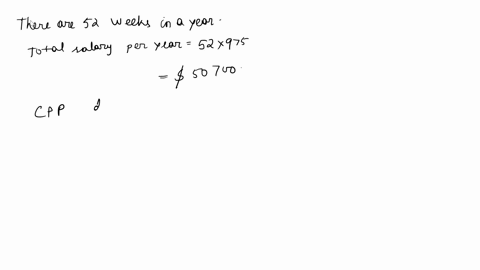 There are 52 weeks in a year.
Total salary per year = 52 x 975
= $ 50700
CPP d